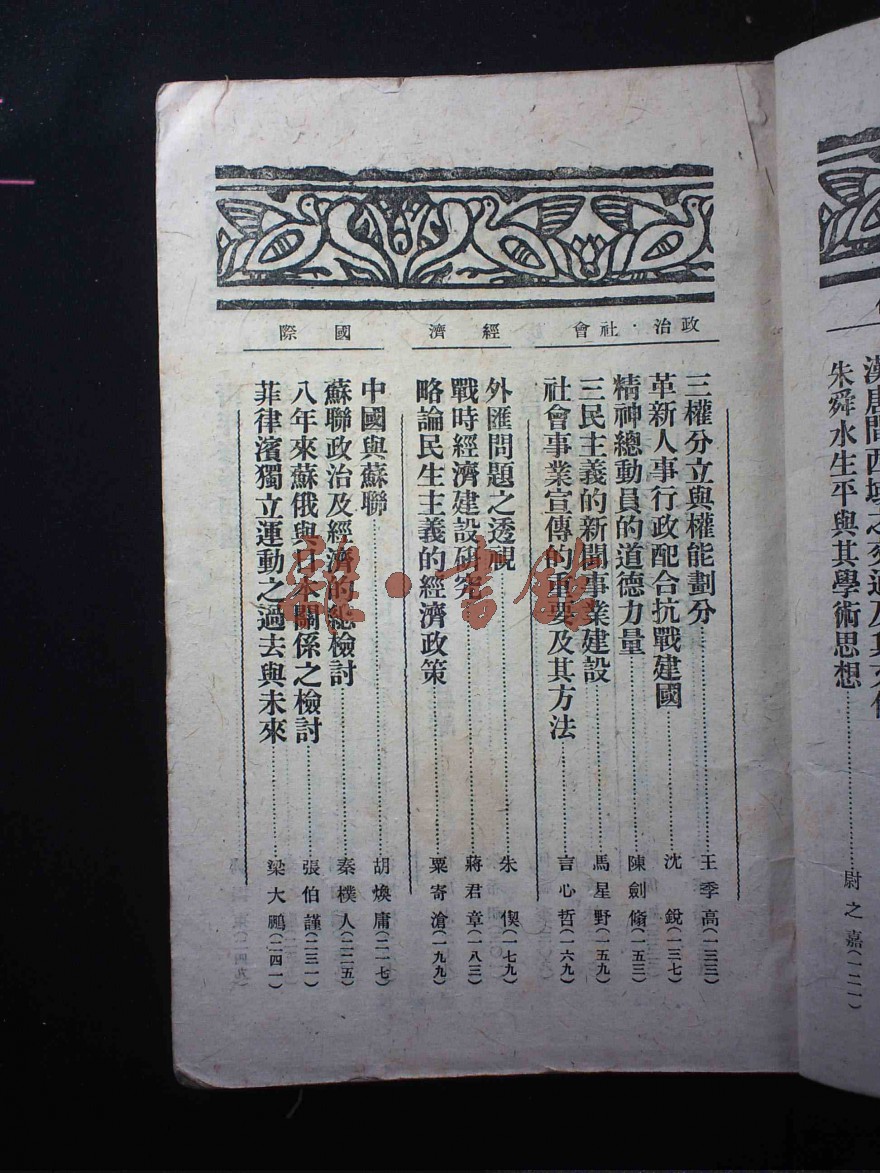 漢唐間西域之交通及其文化
朱舜水生平與其學術思想……尉之嘉(一二一)
政治·社會
三權分立與權能劃分……王季高(一三三)
革新人事行政配合抗戰建國……沈 銳(一三七)
精神總動員的道德力量……陳劍翛(一五三)
三民主義的新聞事業建設……馬星野(一五九)
社會事業宣傳的重要及其方法……言心哲(一六九)
經濟
外匯問題之透視……朱 偰(一七九)
戰時經濟建設研究……蔣君章(一八三)
略論民生主義的經濟政策……粟寄滄(一九九)
國際
中國與蘇聯……胡煥庸(二一七)
蘇聯政治及經濟的總檢討……秦樸人(二二五)
八年來蘇俄與日本關係之檢討……張伯謹(二三一)
菲律濱獨立運動之過去與未來……梁大鵬(二四一)
雜·書館